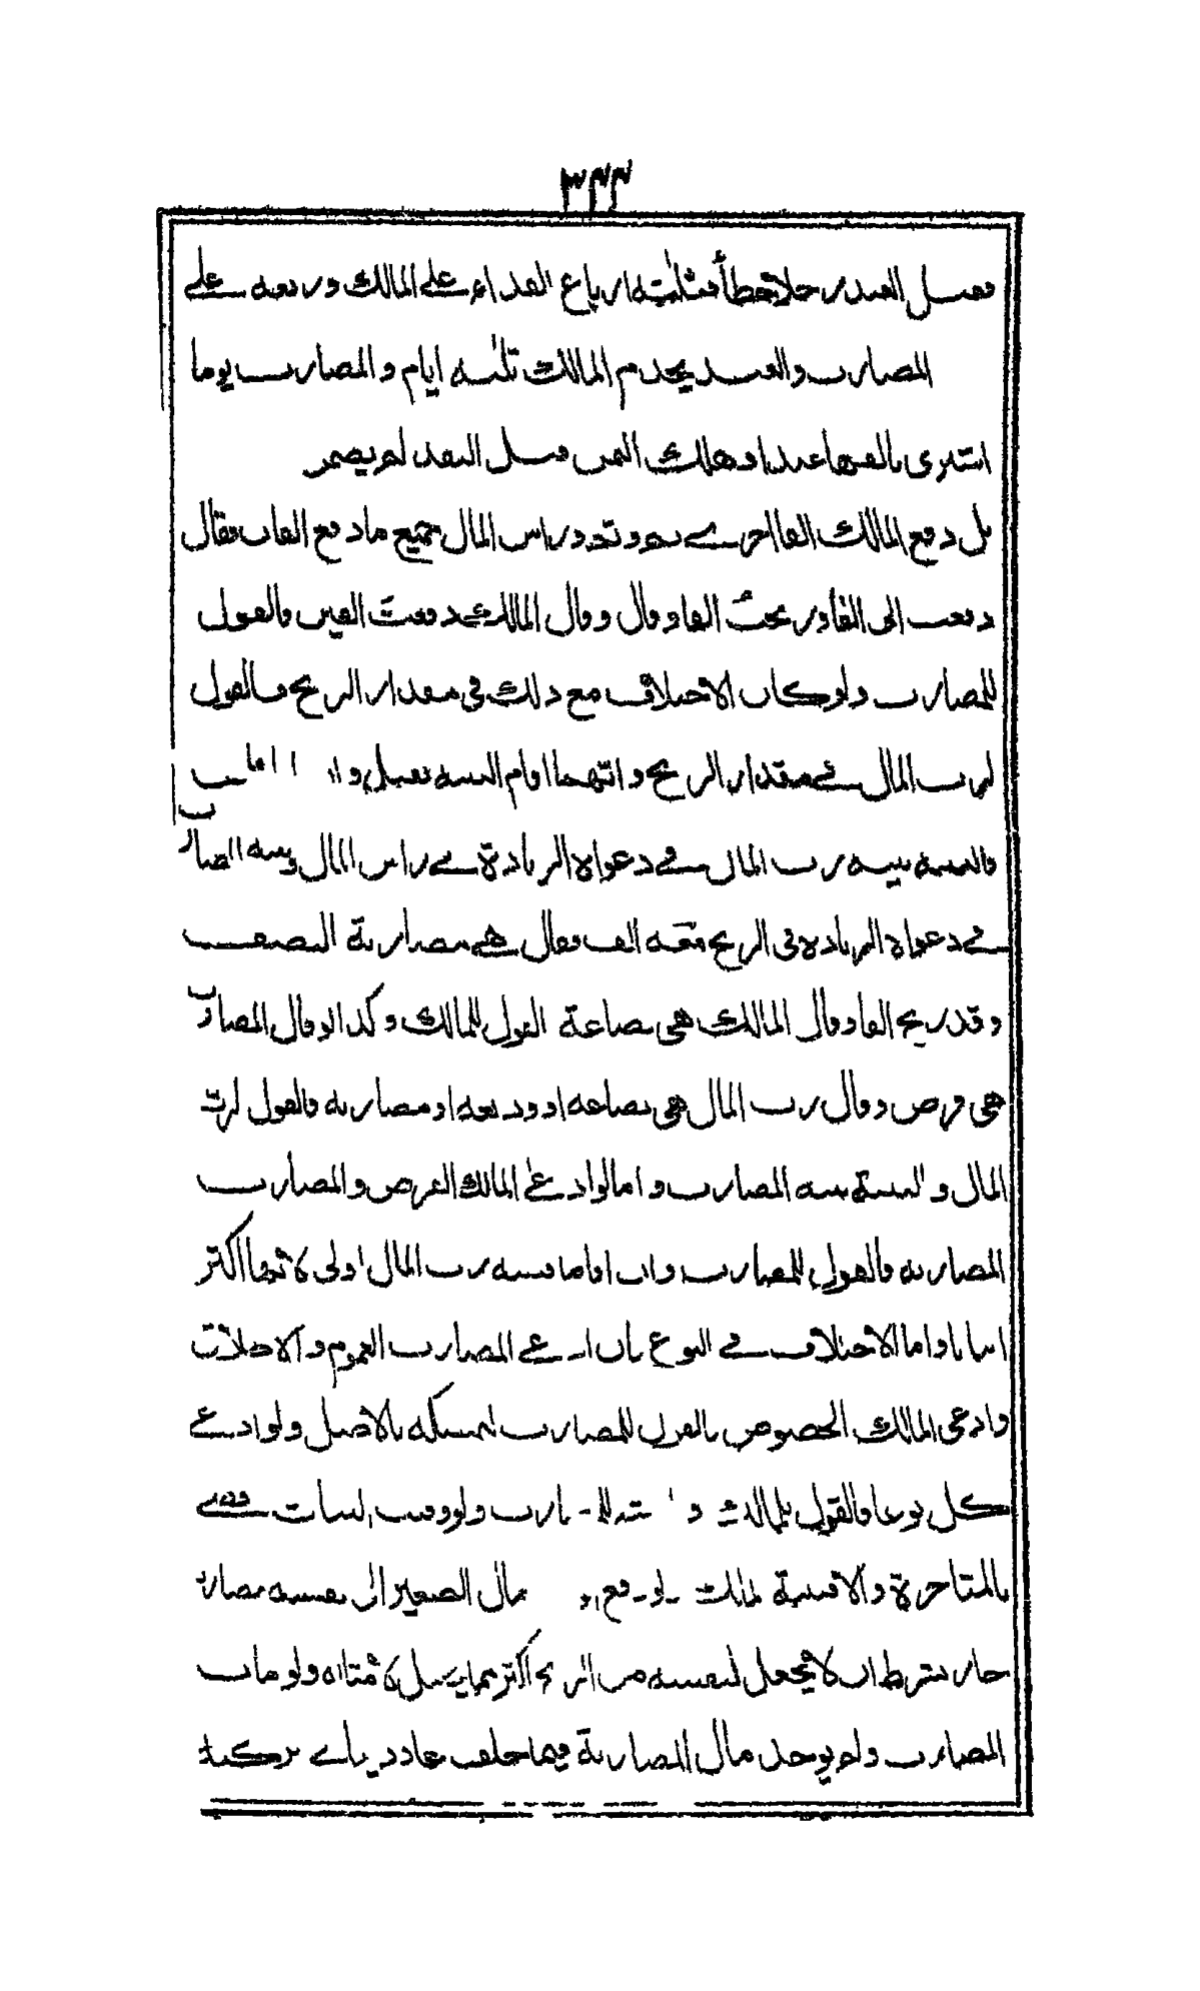 ٣٤٣
فقتل العبد رجلا خطأ فثلثة ارباع الفداء على المالك وربعه على
المضارب والعبد يخدم المالك ثلثة ايام والمضارب يوما
اشترى بالفها عبدا وهلك الثمن قبل النقد لم يضمن
بل دفع المالك الفا اخرى ثم وثم وراس المال جميع ما دفع الفان فقال
دفعت الى الفا وربحت الفا وقال المالك دفعت الفين فالقول
للمضارب ولو كان الاختلاف مع ذلك فى مقدار الربح فالقول
لرب المال فى مقدار الربح وايهما اقام البينة تقبل وان اقاما
فالبينة بينة رب المال فى دعواه الزيادة فى راس المال وبينة المضارب
فى دعواه الزيادة فى الربح معه الف فقال هى مضاربة بالنصف
وقد ربح الفا وقال المالك هى بضاعة القول للمالك وكذا لو قال المضارب
هى قرض وقال رب المال هى بضاعة او وديعة او مضاربة فالقول لرب
المال والبينة بينة المضارب واما لو ادعى المالك القرض والمضارب
المضاربة فالقول للمضارب وان اقاما فبينة رب المال اولى لانها اكثر
اثباتا واما الاختلاف فى النوع بان ادعى المضارب العموم والاطلاق
وادعى المالك الخصوص فالقول للمضارب لتمسكه بالاصل ولو ادعى
كل نوعا فالقول للمالك والبينة للمضارب ولو وقت البينات قضى
بالمتاخرة والا فبينة المالك لو دفع مال الصغير الى نفسه مضاربة
جاز بشرط ان لا يجعل لنفسه من الربح اكثر مما يجعل لامثاله ولو مات
المضارب ولم يوجد مال المضاربة فيما خلف عاد دينا فى تركته